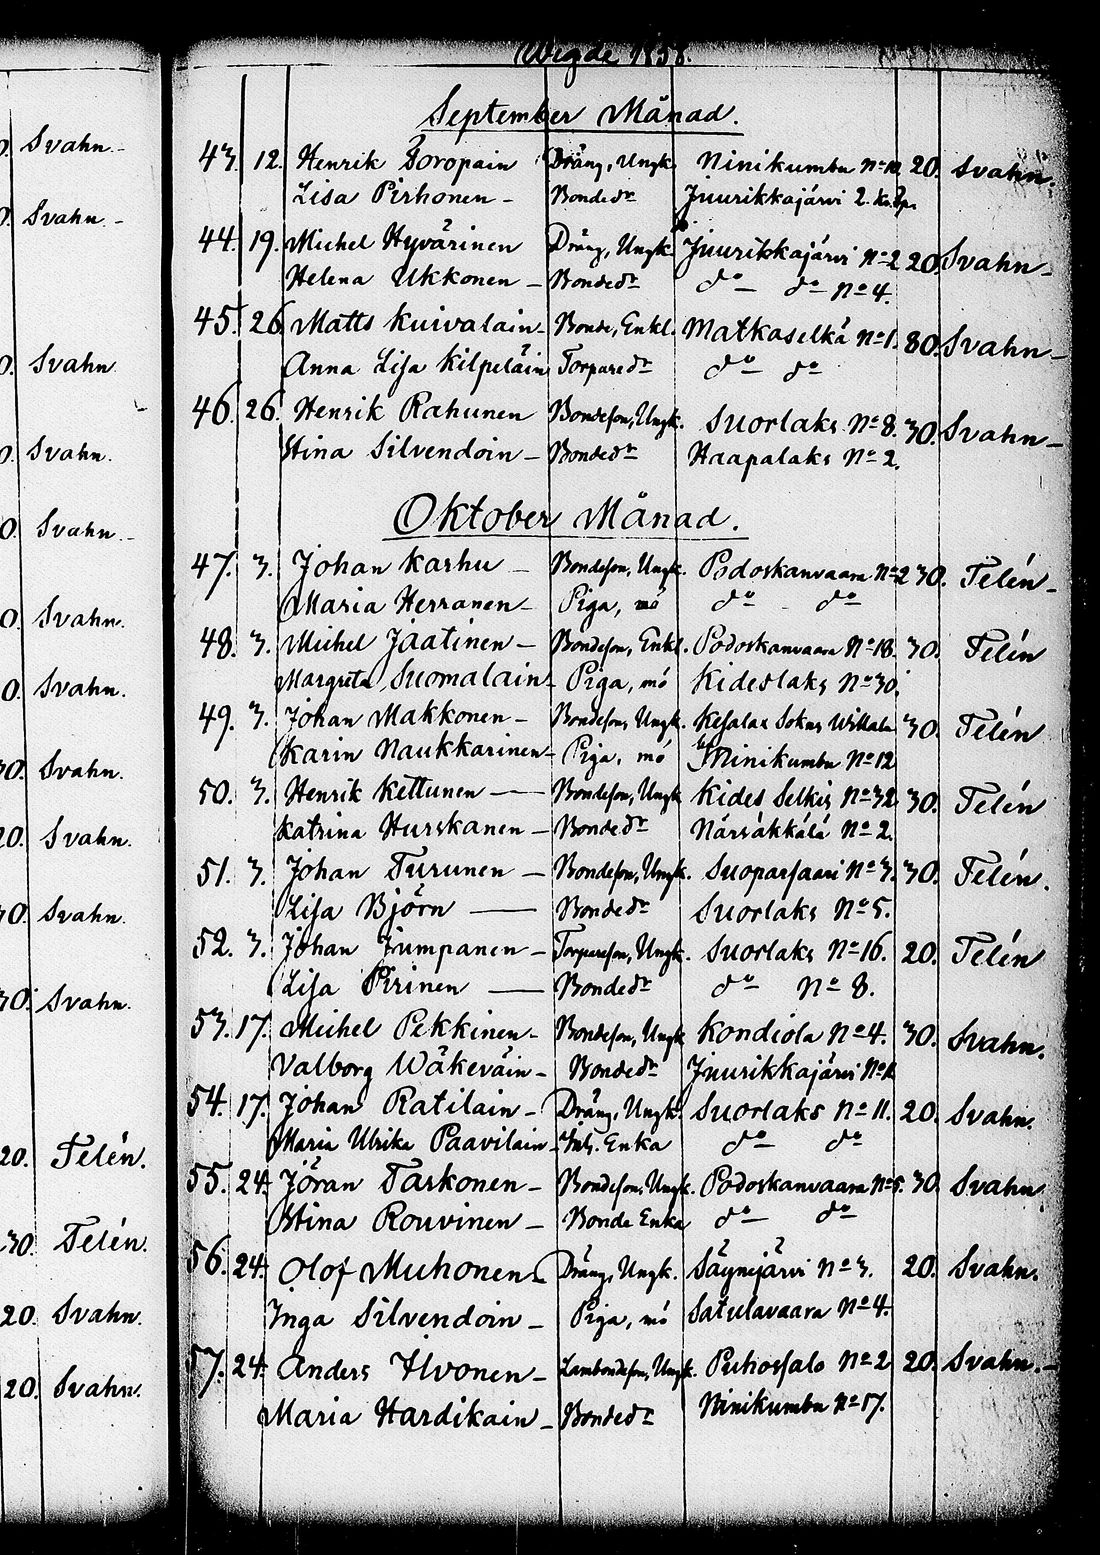 Wigde 1858.
September Månad.
43. 12. Henrik Soropain Dräng, Ungk. Ninikumbu No 10. 20. Svahn.
Lisa Pirhonen - Bondedr Juurikkajärvi 2.
44. 19. Michel Hyvärinen Dräng, Ungk. Juurikkajärvi No 2 20. Svahn -
Helena Ukkonen - Bondedr do do No 4.
45. 26. Matts Kuivalain - Bonde, Enkl. Matkaselkä No 1. 80. Svahn -
Anna Lisa Kilpeläin Torparedr do do
46. 26. Henrik Rahunen Bondeson, Ungk. Suorlaks No 8. 30. Svahn -
Stina Silvendoin - Bondedr Haapalaks No 2.
Oktober Månad.
47. 3. Johan Karhu - Bondeson, Ungk. Podoskanvaara No 2 30. Telén -
Maria Herranen - Piga, mö do - do
48. 3. Michel Jaatinen - Bondeson, Enkl. Podoskanvaara No 18. 30. Telén
Margreta Suomalain - Piga, mö Kideslaks No 30.
49. 3. Johan Makkonen - Bondeson, Ungk. Kesalax Sokns Willala 30. Telén
Karin Naukkarinen - Piga, mö Ninikumbu No 12
50. 3. Henrik Kettunen - Bondeson, Ungk Kides Selkis No 32 30. Telén
Katrina Hurskanen - Bondedr Närsäkkälä No 2.
51. 3. Johan Turunen - Bondeson, Ungk. Suoparsaari No 3. 30. Telén.
Lisa Björn - Bondedr Suorlaks No 5.
52. 3. Johan Jumpanen - Torpareson, Ungk. Suorlaks No 16. 20. Telén
Lisa Pirinen - Bondedr do No 8.
53. 17. Michel Pekkinen - Bondeson, Ungk Kondiola No 4. 30. Svahn.
Valborg Wäkeväin - Bondedr Juurikkajärvi No
54. 17. Johan Ratilain - Dräng, Ungk. Suorlaks No 11. 20. Svahn.
Maria Ulrika Paavilain - Inh. Enka do do
55. 24. Jöran Tarkonen - Bondeson, Ungk. Podoskanvaara No 5. 30. Svahn
Stina Rouvinen - Bonde Enka do do
56. 24. Olof Muhonen - Dräng, Ungk. Säynejärvi No 3. 20. Svahn.
Inga Silvendoin - Piga, mö Satulavaara No 4.
57. 24. Anders Ilvonen - Lambondeson, Ungk. Puhossalo No 2 20. Svahn. -
Maria Hardikain - Bondedr Ninikumbu No 17.
0. Svahn. -
0. Svahn. -
0. Svahn.
0. Svahn.
0. Svahn. -
0. Svahn.
0. Svahn.
30. Svahn.
20. Svahn.
30. Svahn.
30. Svahn.
20. Telén.
30. Telén.
20. Svahn.
20. Svahn.